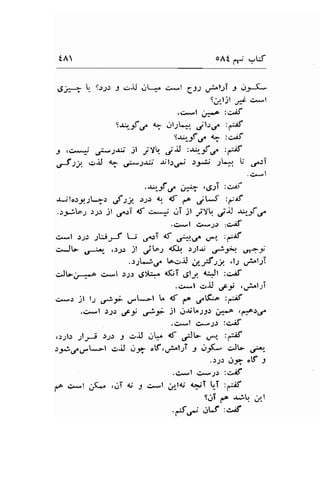 کتاب نهم ۵۸٤
٤٨١
سکون و آرامش روح است میان لذت و درد؟ یا چیزی
است غیر ازاین؟
گفت: همین است.
گفتم: می‌دانی بیماران چه می‌گویند؟
گفت: چه می‌گویند؟
گفتم: می‌گویند: لذتی بالاتر از تندرستی نیست، و
آدمی تا بیمار نشود نمی‌داند تندرستی چه لذت بزرگی
است.
گفت: آری، چنین می‌گویند.
گفتم: کسانی هم که به درد بزرگی دچاربوده‌اند
می‌گویند لذتی بالاتر از آن نیست که آدمی از درد رها شود.
گفت: درست است.
گفتم: پس می‌بینی که آدمی تا گرفتار درد است
هیچ خوشی ندارد بلکه رهائی از درد، یعنی حالت
آرامش را، بزرگترین لذتها می‌شمارد.
گفت: البته برای آنکه آرامش برای او در آن حال خوش‌ترین حالت
است.
گفتم: هنگامی هم که ما احساس خوشی را از دست
می‌دهیم، همین دورماندن از خوشی نوعی درد است.
گفت: درست است.
گفتم: پس حالتی که میان لذت و درد قرار دارد،
یعنی حالت سکون و آرامش، گاه چون لذت احساس‌می‌شود
و گاه چون درد.
گفت: درست است.
گفتم: آیا آنچه نه‌این است و نه آن، ممکن است هم
این باشد هم آن؟
گفت: گمان نمی‌کنم.